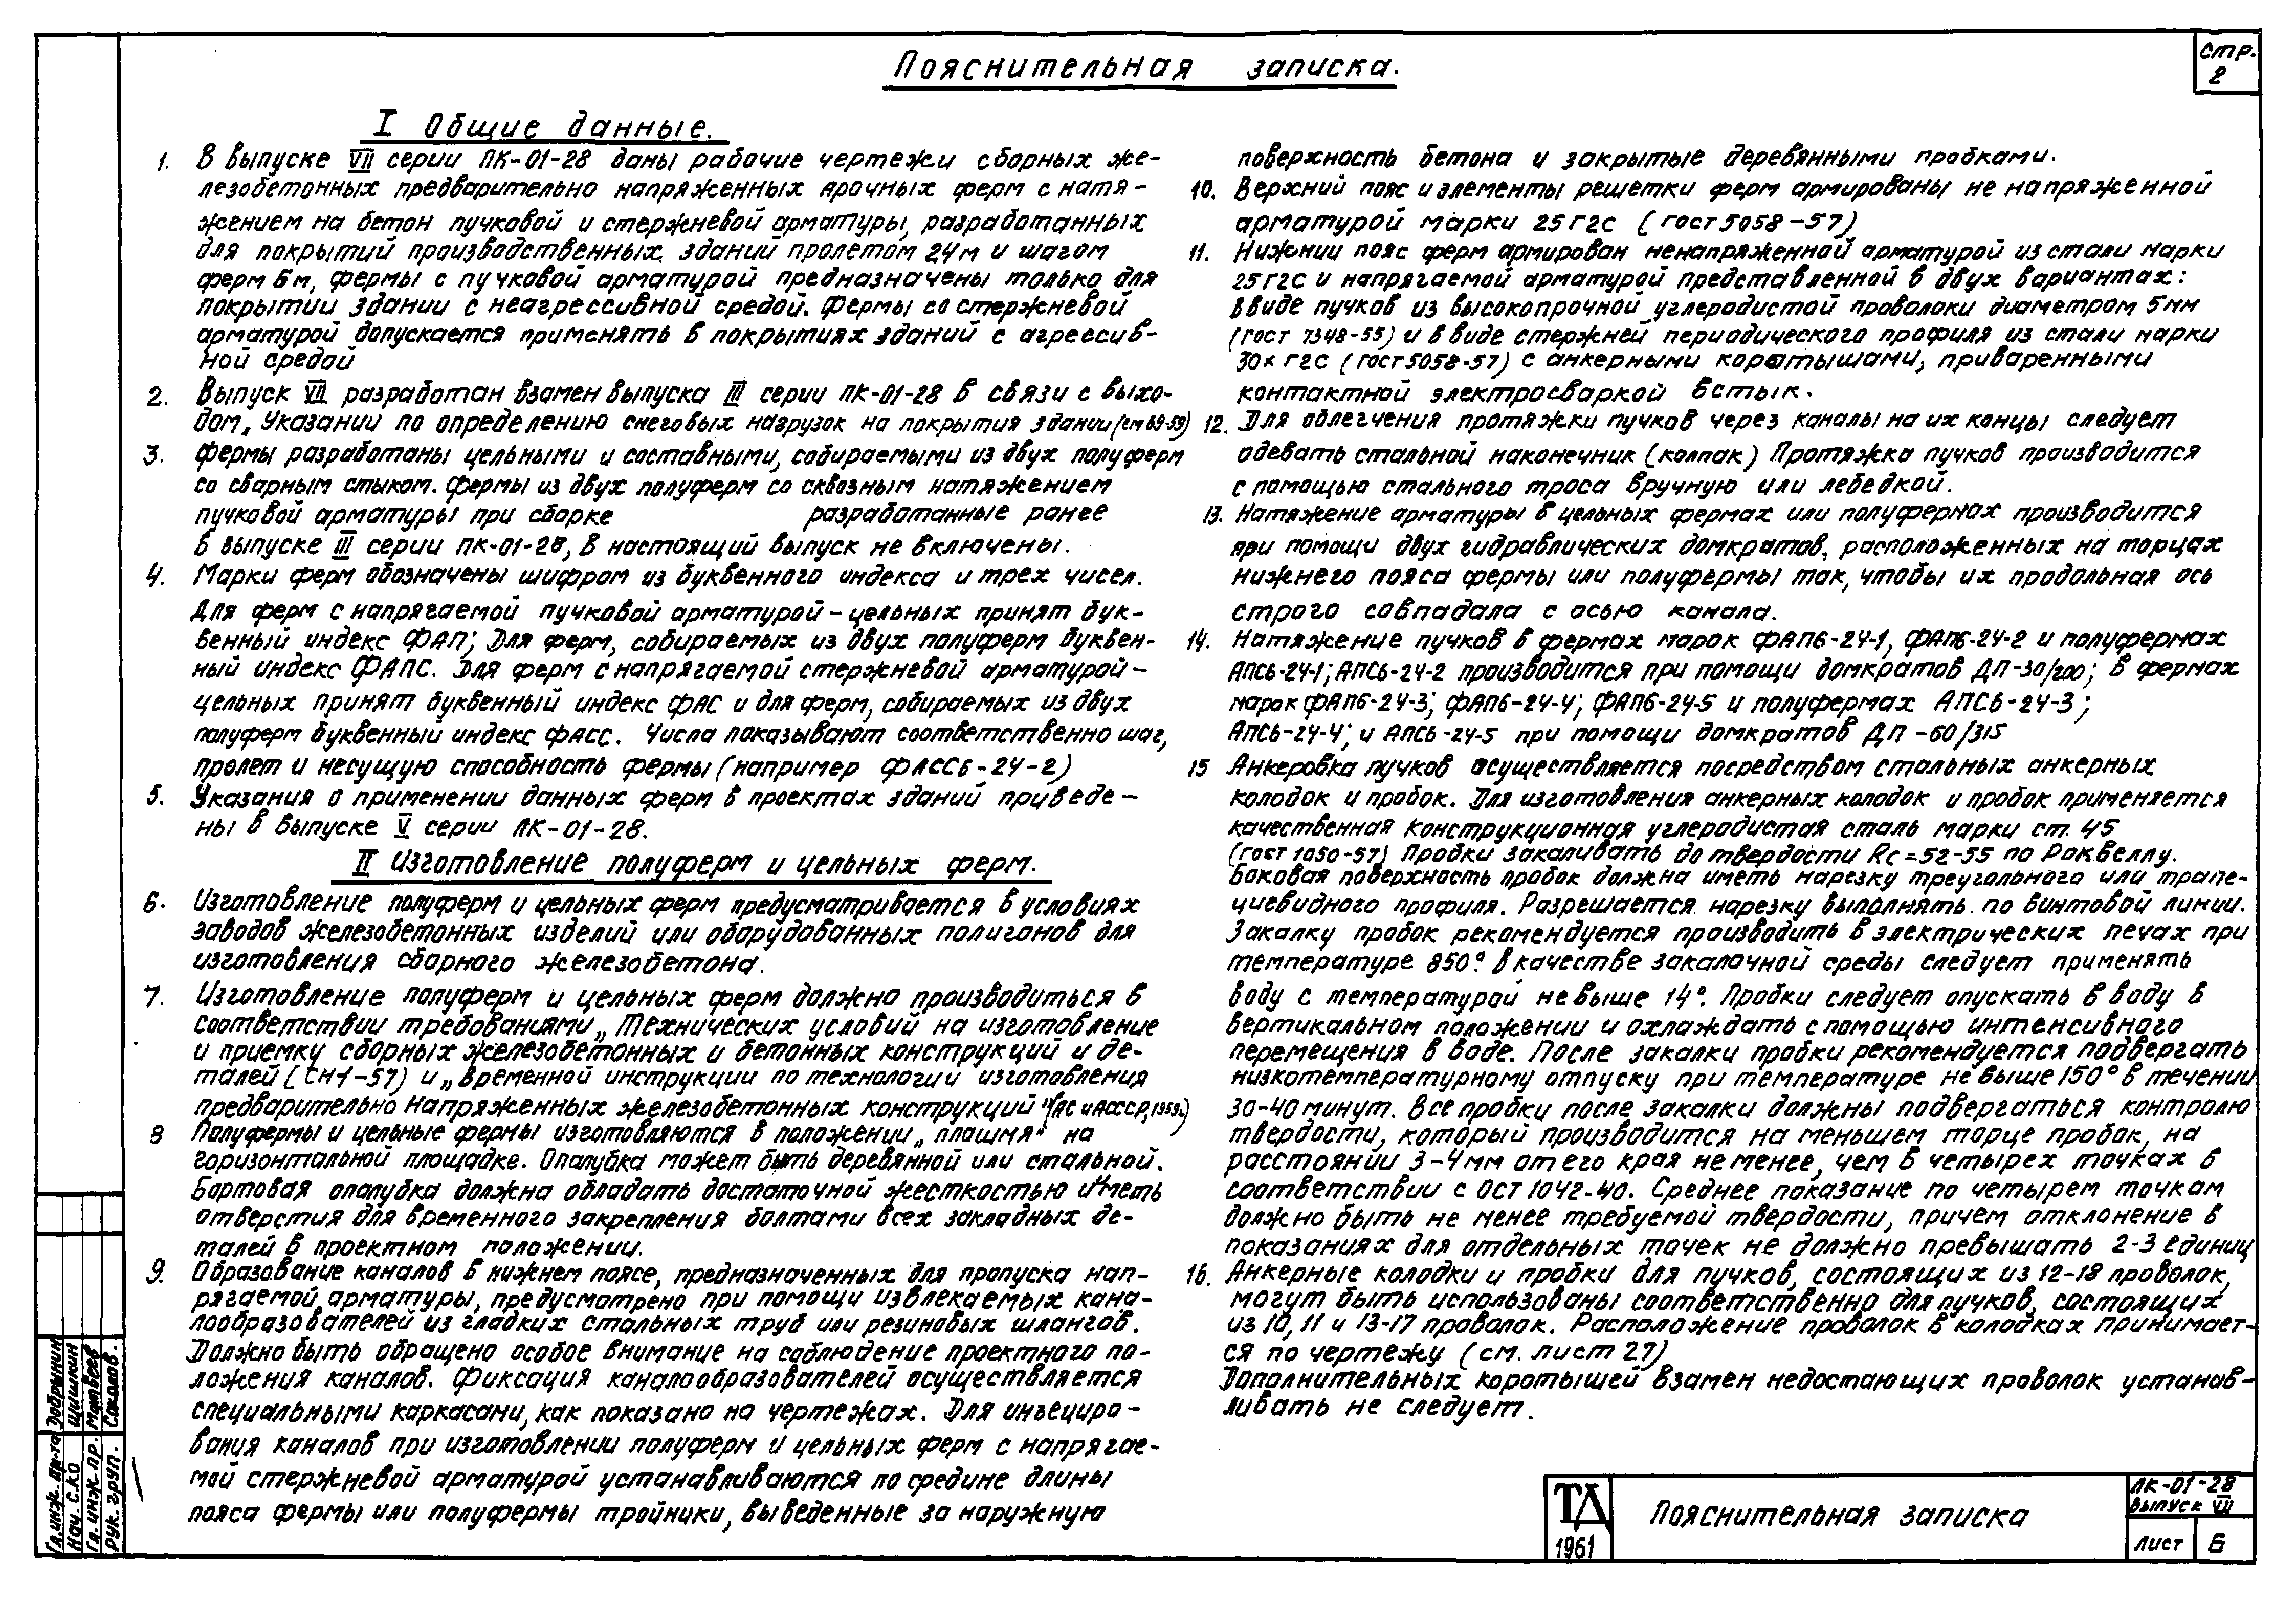 Пояснительная записка.
стр.
2
I Общие данные.
1. В выпуске VII серии ПК-01-28 даны рабочие чертежи сборных же-
лезобетонных предварительно напряженных арочных ферм с натя-
жением на бетон пучковой и стержневой арматуры, разработанных
для покрытий производственных зданий пролетом 24м и шагом
ферм 6м, фермы с пучковой арматурой предназначены только для
покрытии здании с неагрессивной средой. Фермы со стержневой
арматурой допускается применять в покрытиях зданий с агрессив-
ной средой
2. Выпуск VII разработан взамен выпуска III серии ПК-01-28 в связи с выхо-
дом „Указании по определению снеговых нагрузок на покрытия здании (СН 69-59)
3. Фермы разработаны цельными и составными, собираемыми из двух полуферм
со сварным стыком. Фермы из двух полуферм со сквозным натяжением
пучковой арматуры при сборке разработанные ранее
в выпуске III серии ПК-01-28, в настоящий выпуск не включены.
4. Марки ферм обозначены шифром из буквенного индекса и трех чисел.
Для ферм с напрягаемой пучковой арматурой-цельных принят бук-
венный индекс ФАП; Для ферм, собираемых из двух полуферм буквен-
ный индекс ФАПС. Для ферм с напрягаемой стержневой арматурой-
цельных принят буквенный индекс ФАС и для ферм, собираемых из двух
полуферм буквенный индекс ФАСС. Числа показывают соответственно шаг,
пролет и несущую способность фермы (например ФАСС6-24-2)
5. Указания о применении данных ферм в проектах зданий приведе-
ны в выпуске V серии ПК-01-28.
II Изготовление полуферм и цельных ферм.
6. Изготовление полуферм и цельных ферм предусматривается в условиях
заводов железобетонных изделий или оборудованных полигонов для
изготовления сборного железобетона.
7. Изготовление полуферм и цельных ферм должно производиться в
соответствии требованиями „Технических условий на изготовление
и приемку сборных железобетонных и бетонных конструкций и де-
талей (СН1-57) и „временной инструкции по технологии изготовления
предварительно напряженных железобетонных конструкций" (АС и АСССР, 1959г.)
8 Полуфермы и цельные фермы изготовляются в положении „плашмя" на
горизонтальной площадке. Опалубка может быть деревянной или стальной.
Бортовая опалубка должна обладать достаточной жесткостью иметь
отверстия для временного закрепления болтами всех закладных де-
талей в проектном положении.
9. Образование каналов в нижнем поясе, предназначенных для пропуска нап-
рягаемой арматуры, предусмотрено при помощи извлекаемых кана-
лообразователей из гладких стальных труб или резиновых шлангов.
Должно быть обращено особое внимание на соблюдение проектного по-
ложения каналов. Фиксация каналообразователей осуществляется
специальными каркасами, как показано на чертежах. Для инъециро-
вания каналов при изготовлении полуферм и цельных ферм с напрягае-
мой стержневой арматурой устанавливаются по средине длины
пояса фермы или полуфермы тройники, выведенные за наружную
поверхность бетона и закрытые деревянными пробками.
10. Верхний пояс и элементы решетки ферм армированы не напряженной
арматурой марки 25Г2С (ГОСТ 5058-57)
11. Нижнии пояс ферм армирован ненапряженной арматурой из стали марки
25Г2С и напрягаемой арматурой представленной в двух вариантах:
в виде пучков из высокопрочной углеродистой проволоки диаметром 5мм
(ГОСТ 7348-55) и в виде стержней периодического профиля из стали марки
30хГ2С (ГОСТ 5058-57) с анкерными коротышами, приваренными
контактной электросваркой встык.
12. Для облегчения протяжки пучков через каналы на их концы следует
одевать стальной наконечник (колпак) Протяжка пучков производится
с помощью стального троса вручную или лебедкой.
13. Натяжение арматуры в цельных фермах или полуфермах производится
при помощи двух гидравлических домкратов, расположенных на торцах
нижнего пояса фермы или полуфермы так, чтобы их продольная ось
строго совпадала с осью канала.
14. Натяжение пучков в фермах марок ФАП6-24-1, ФАП6-24-2 и полуфермах
АПС6-24-1; АПС6-24-2 производится при помощи домкратов ДП-30/200; в фермах
марок ФАП6-24-3; ФАП6-24-4; ФАП6-24-5 и полуфермах АПС6-24-3;
АПС6-24-4; и АПС6-24-5 при помощи домкратов ДП-60/315
15 Анкеровка пучков осуществляется посредством стальных анкерных
колодок и пробок. Для изготовления анкерных колодок и пробок применяется
качественная конструкционная углеродистая сталь марки ст. 45
(ГОСТ 1050-57) Пробки закаливать до твердости Rc=52-55 по Роквеллу.
Боковая поверхность пробок должна иметь нарезку треугольного или трапе-
циевидного профиля. Разрешается нарезку выполнять по винтовой линии.
Закалку пробок рекомендуется производить в электрических печах при
температуре 850° в качестве закалочной среды следует применять
воду с температурой не выше 14°. Пробки следует опускать в воду в
вертикальном положении и охлаждать с помощью интенсивного
перемещения в воде. После закалки пробки рекомендуется подвергать
низкотемпературному отпуску при температуре не выше 150° в течении
30-40 минут. Все пробки после закалки должны подвергаться контролю
твердости, который производится на меньшем торце пробок, на
расстоянии 3-4мм от его края не менее, чем в четырех точках в
соответствии с ОСТ 1042-40. Среднее показание по четырем точкам
должно быть не менее требуемой твердости, причем отклонение в
показаниях для отдельных точек не должно превышать 2-3 единиц
16. Анкерные колодки и пробки для пучков, состоящих из 12-18 проволок,
могут быть использованы соответственно для пучков, состоящих
из 10, 11 и 13-17 проволок. Расположение проволок в колодках принимает-
ся по чертежу (см. лист 27)
Дополнительных коротышей взамен недостающих проволок устанав-
ливать не следует.
Гл.инж. пр-та Добрынин
Нач. С.К.О Шишкин
Гл. инж. пр. Матвеев
Рук. груп. Соколов.
ТД
1961
Пояснительная записка
ПК-01-28
выпуск VII
лист Б